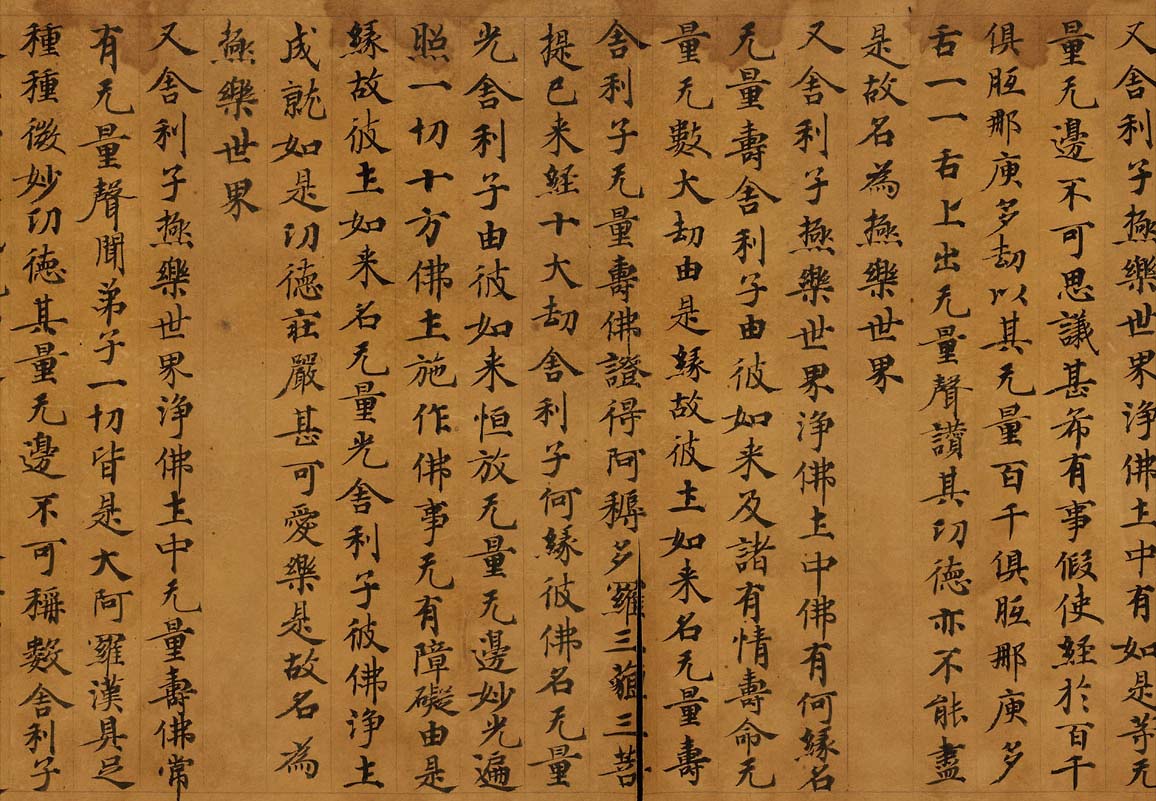 又舍利子極樂世界淨佛土中有如是等无
量无邊不可思議甚希有事假使經於百千
俱胝那庾多劫以其无量百千俱胝那庾多
舌一一舌上出无量聲讚其功德亦不能盡
是故名為極樂世界
又舍利子極樂世界淨佛土中佛有何緣名
无量壽舍利子由彼如来及諸有情壽命无
量无數大劫由是緣故彼土如来名无量壽
舍利子无量壽佛證得阿耨多羅三藐三菩
提已来經十大劫舍利子何緣彼佛名无量
光舍利子由彼如来恒放无量无邊妙光遍
照一切十方佛土施作佛事无有障礙由是
緣故彼土如来名无量光舍利子彼佛淨土
成就如是功德莊嚴甚可愛樂是故名為
極樂世界
又舍利子極樂世界淨佛土中无量壽佛常
有无量聲聞弟子一切皆是大阿羅漢具足
種種微妙功德其量无邊不可稱數舍利子